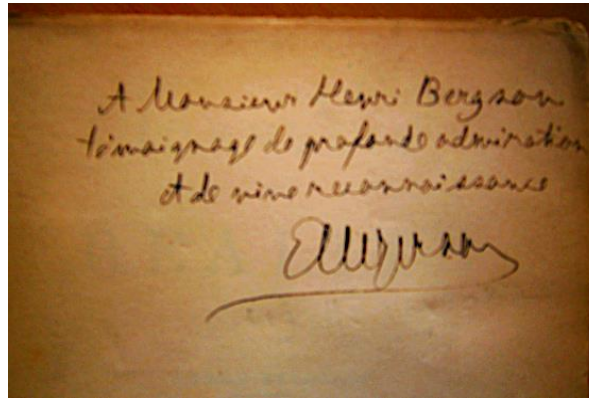 A Monsieur Henri Bergson
témoignage de profonde admiration
et de vive reconnaissance